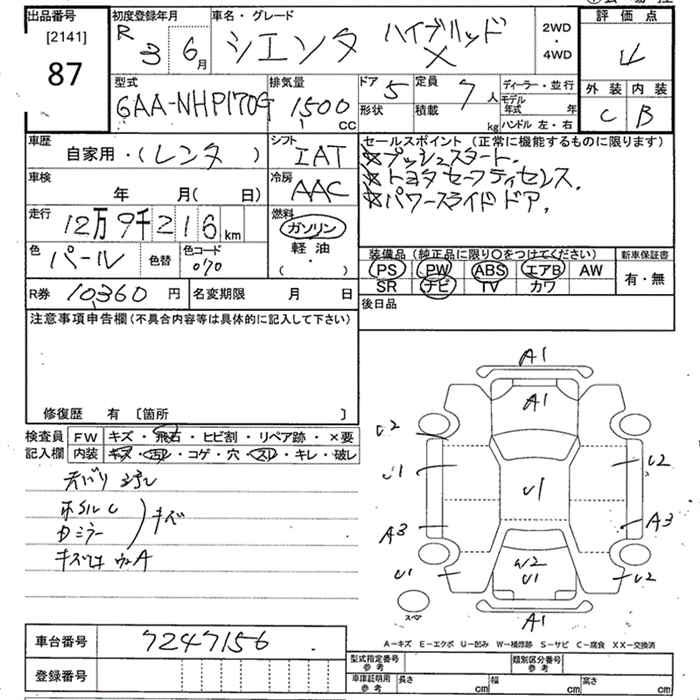 出品番号
[2141]
87
初度登録年月
R 3 6 月
車名・グレード
シエンタ ハイブリッド X
2WD
・
4WD
評価点
4
外装 内装
C B
型式
6AA-NHP170G
排気量
1500 CC
ドア 5
形状
定員 7 人
積載 kg
ディーラー・並行
モデル年式 年
ハンドル 左・右
車歴
自家用・(レンタ )
シフト
IAT
車検
年 月( 日)
冷房
AAC
走行
12万9千216 km
燃料
ガソリン
軽油
・
色
パール
色替
色コード
070
R券 10360 円
名変期限 月 日
セールスポイント (正常に機能するものに限ります)
※プッシュスタート.
※トヨタセーフティセンス.
※パワースライドドア.
装備品 (純正品に限り○をつけてください)
PS PW ABS エアB AW
SR ナビ TV カワ
新車保証書
有・無
後日品
注意事項申告欄 (不具合内容等は具体的に記入して下さい)
修復歴 有 〔箇所 〕
検査員
記入欄
FW キズ・飛石・ヒビ割・リペア跡・×要
内装 キズ・汚レ・コゲ・穴・スレ・キレ・破レ
キズ
A1
A1
U2
U1
A3
U1
U1
U2
A3
U2
W2
U1
A1
スペア
A=キズ E=エクボ U=凹み W=補修跡 S=サビ C=腐食 XX=交換済
車台番号 7247156
登録番号
型式指定番号
参考
類別区分番号
参考
車庫証明用
参考
長さ cm 幅 cm 高さ cm